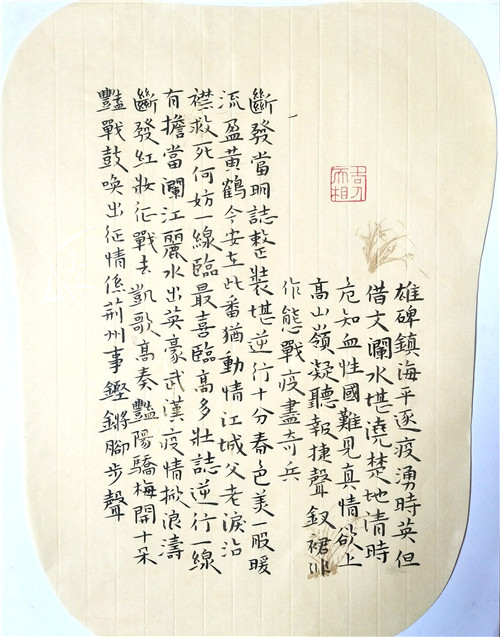 雄碑鎮海平逐疫湧時英但
借文瀾水堪澆楚地清時
危知血性國難見真情欲上
高山嶺凝聽報捷聲釵裙非
作態戰疫盡奇兵
斷發當明誌整裝堪逆行十分春色美一股暖
流盈黃鶴今安在此番猶動情江城父老淚沿
襟救死何妨一線臨最喜臨高多壯誌逆行一線
有擔當闌江麗水出英豪武漢疫情掀浪濤
斷發紅妝征戰去凱歌高奏豔陽驕梅開十朵
豔戰鼓喚出征情係荊州事鏗鏘腳步聲